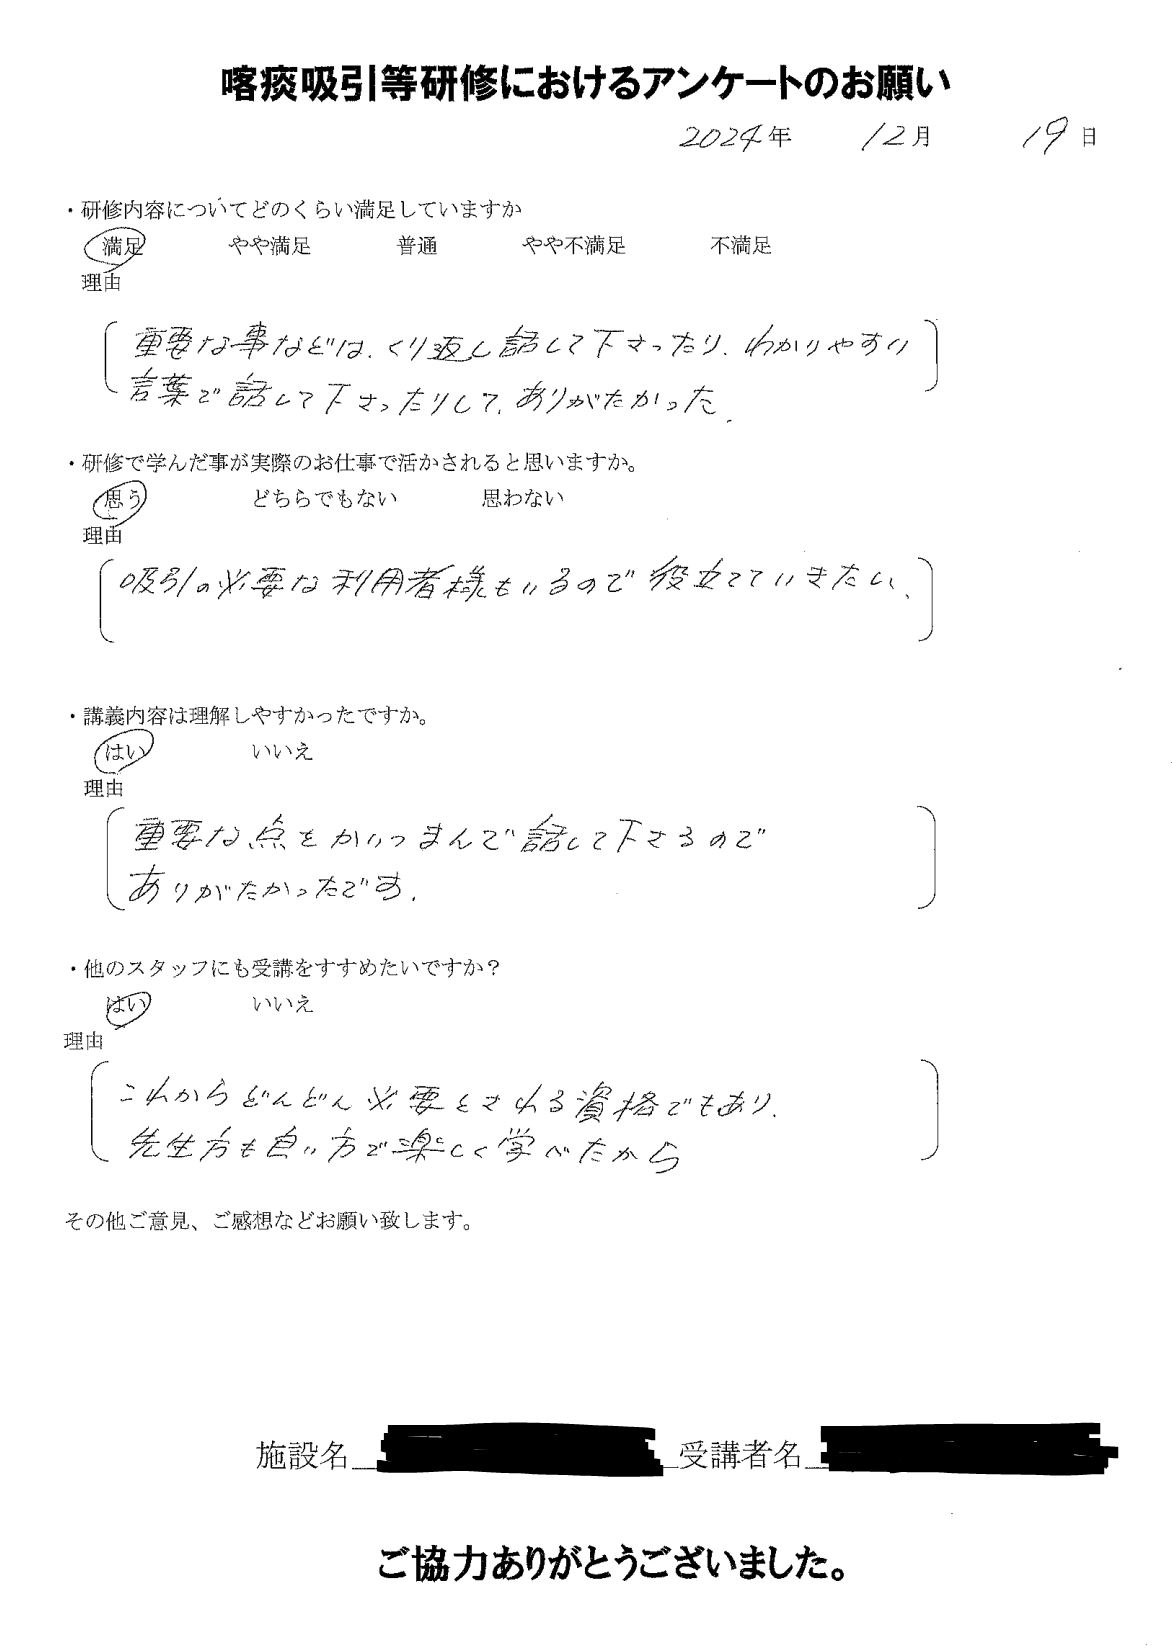 喀痰吸引等研修におけるアンケートのお願い
2024年 12月 19日
・研修内容についてどのくらい満足していますか
満足 やや満足 普通 やや不満足 不満足
理由
重要な事などは、くり返し話して下さったり、わかりやすい
言葉で話して下さったりして、ありがたかった.
・研修で学んだ事が実際のお仕事で活かされると思いますか。
思う どちらでもない 思わない
理由
吸引の必要な利用者様もいるので役立てていきたい、
・講義内容は理解しやすかったですか。
はい いいえ
理由
重要な点をかいつまんで話して下さるので
ありがたかったです.
・他のスタッフにも受講をすすめたいですか？
はい いいえ
理由
これからどんどん必要とされる資格でもあり、
先生方も良い方で楽しく学べたから
その他ご意見、ご感想などお願い致します。
施設名 受講者名
ご協力ありがとうございました。